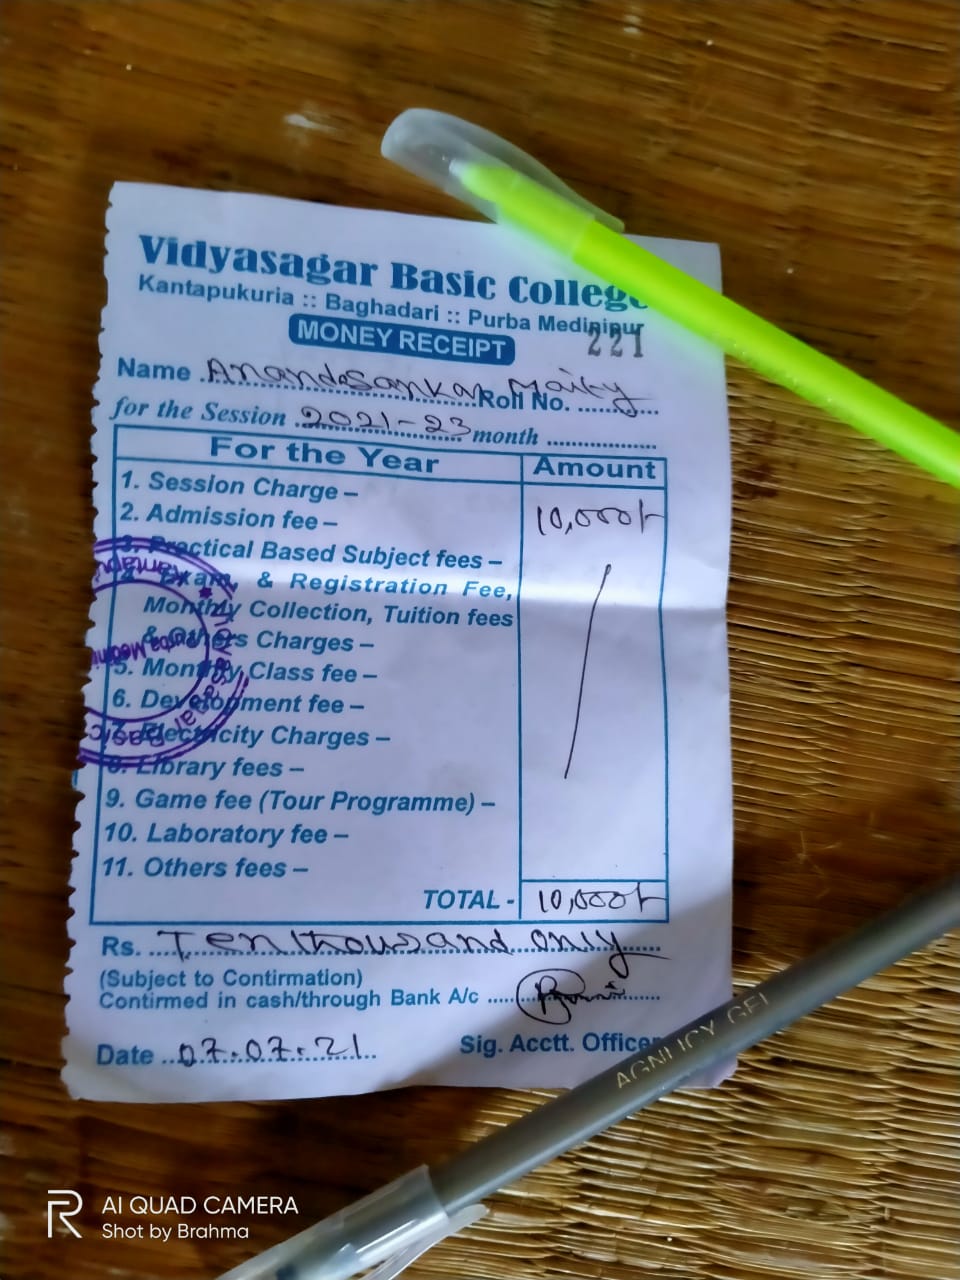 Vidyasagar Basic College
Kantapukuria :: Baghadari :: Purba Medinipur
MONEY RECEIPT 221
Name Anandasankar Maity Roll No.
for the Session 2021-23 month
For the Year Amount
1. Session Charge –
2. Admission fee – 10,000/-
3. Practical Based Subject fees –
4. Exam. & Registration Fee,
Monthly Collection, Tuition fees
& Others Charges –
5. Monthly Class fee –
6. Development fee –
7. Electricity Charges –
8. Library fees –
9. Game fee (Tour Programme) –
10. Laboratory fee –
11. Others fees –
TOTAL - 10,000/-
Rs. Ten thousand only
(Subject to Confirmation)
Confirmed in cash/through Bank A/c
Sig. Acctt. Officer
Date 07.07.21
AGNI ICY GEL
AI QUAD CAMERA
Shot by Brahma